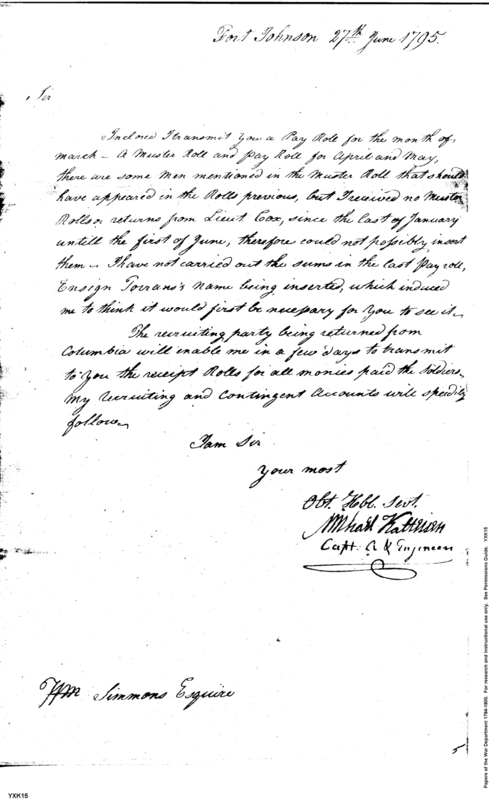 Fort Johnson 27th June 1795.
Sir
Inclosed I transmit you a Pay Roll for the month of
march – A Muster Roll and Pay Roll for April and May,
there are some Men mentioned in the Muster Roll that should
have appeared in the Rolls previous, but I received no Muster
Rolls or returns from Lieut Cox, since the last of January
untill the first of June, therefore could not possibly insert
them – I have not carried out the sums in the last Pay roll,
Ensign Torrans's name being inserted, which induced
me to think it would first be necessary for You to see it –
The recruiting party being returned from
Columbia will enable me in a few days to transmit
to You the receipt Rolls for all monies paid the Soldiers –
My recruiting and Contingent Accounts will speedily
follow –
I am Sir
Your most
Obt. Hbl. Servt.
Michael Kalteisen
Capt. A & Engineers
Wm Simmons Esquire
5
YXK15
Papers of the War Department 1784-1800. For research and instructional use only. See Permissions Guide. YXK15